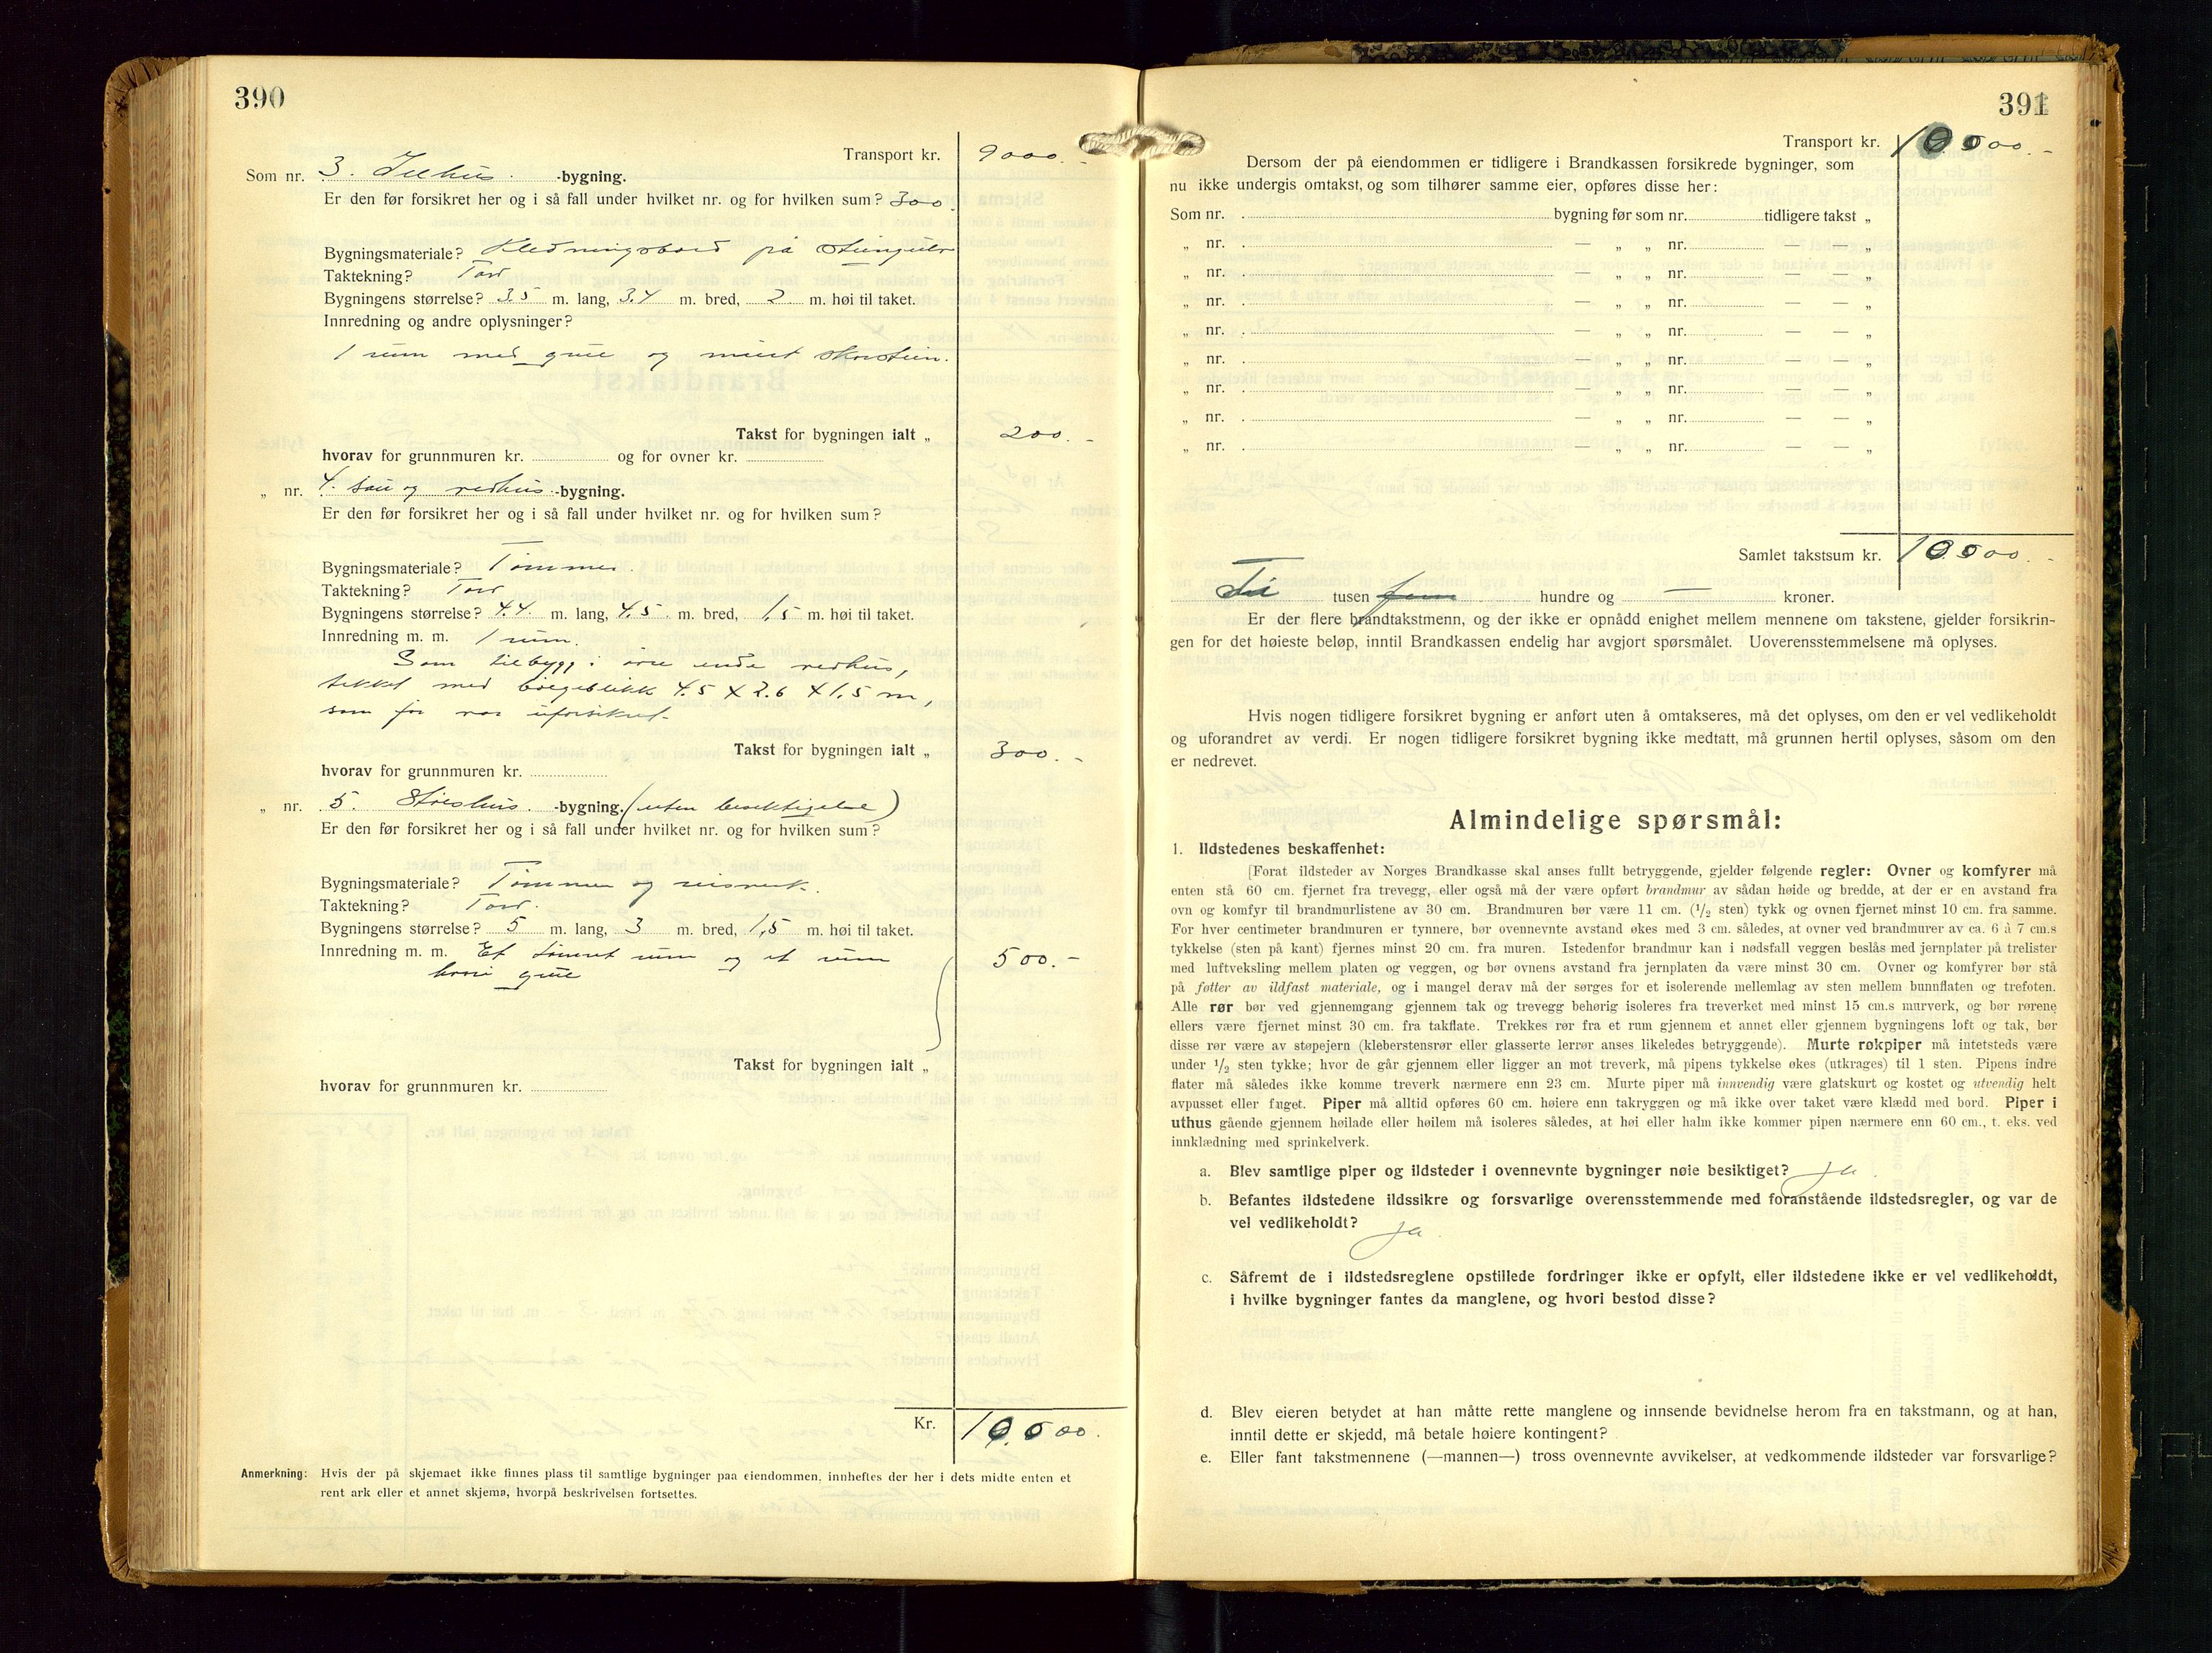 390
Transport kr. 9000.-
Som nr. 3. Ildhus. -bygning.
Er den før forsikret her og i så fall under hvilket nr. og for hvilken sum? 300.
Bygningsmateriale? Kledningsbord på
Taktekning? Torv
Bygningens størrelse? 3.5 m. lang, 3.4 m. bred, 2 m. høi til taket.
Innredning og andre oplysninger?
1 rum med grue og murt skorstein.
Takst for bygningen ialt „ 200.-
hvorav for grunnmuren kr. og for ovner kr.
„ nr. 4. Sau og vedhus -bygning.
Er den før forsikret her og i så fall under hvilket nr. og for hvilken sum?
Bygningsmateriale? Tømmer
Taktekning? Torv
Bygningens størrelse? 4.4. m. lang, 4.5 m. bred, 1,5 m. høi til taket.
Innredning m. m. 1 rum.
Som tilbygg i øvre ende vedhus,
tekket med bølgeblikk 4.5 X 2.6 X 1,5 m,
som før var uforsikret.
Takst for bygningen ialt „ 300.-
hvorav for grunnmuren kr.
„ nr. 5. Støleshus. -bygning. (uten besiktigelse)
Er den før forsikret her og i så fall under hvilket nr. og for hvilken sum?
Bygningsmateriale? Tømmer og reisverk.
Taktekning? Torv.
Bygningens størrelse? 5 m. lang, 3 m. bred, 1,5 m. høi til taket.
Innredning m. m. Et tømret rum og et rum 500.-
hvori grue
Takst for bygningen ialt „
hvorav for grunnmuren kr.
Kr. 10000.
Anmerkning: Hvis der på skjemaet ikke finnes plass til samtlige bygninger paa eiendommen, innheftes der her i dets midte enten et
rent ark eller et annet skjema, hvorpå beskrivelsen fortsettes.
391
Transport kr. 10000.-
Dersom der på eiendommen er tidligere i Brandkassen forsikrede bygninger, som
nu ikke undergis omtakst, og som tilhører samme eier, opføres disse her:
Som nr. bygning før som nr. tidligere takst „
„ nr. — „ „ nr. — — „
„ nr. — „ „ nr. — — „
„ nr. — „ „ nr. — — „
„ nr. — „ „ nr. — — „
„ nr. — „ „ nr. — — „
„ nr. — „ „ nr. — — „
„ nr. — „ „ nr. — — „
„ nr. — „ „ nr. — — „
Samlet takstsum kr. 10000.-
Ti tusen fem hundre og — kroner.
Er der flere brandtakstmenn, og der ikke er opnådd enighet mellem mennene om takstene, gjelder forsikrin-
gen for det høieste beløp, inntil Brandkassen endelig har avgjort spørsmålet. Uoverensstemmelsene må oplyses.
Hvis nogen tidligere forsikret bygning er anført uten å omtakseres, må det oplyses, om den er vel vedlikeholdt
og uforandret av verdi. Er nogen tidligere forsikret bygning ikke medtatt, må grunnen hertil oplyses, såsom om den
er nedrevet.
Almindelige spørsmål:
1. Ildstedenes beskaffenhet:
[Forat ildsteder av Norges Brandkasse skal anses fullt betryggende, gjelder følgende regler: Ovner og komfyrer må
enten stå 60 cm. fjernet fra trevegg, eller også må der være opført brandmur av sådan høide og bredde, at der er en avstand fra
ovn og komfyr til brandmurlistene av 30 cm. Brandmuren bør være 11 cm. (1/2 sten) tykk og ovnen fjernet minst 10 cm. fra samme.
For hver centimeter brandmuren er tynnere, bør ovennevnte avstand økes med 3 cm. således, at ovner ved brandmurer av ca. 6 à 7 cm.s
tykkelse (sten på kant) fjernes minst 20 cm. fra muren. Istedenfor brandmur kan i nødsfall veggen beslås med jernplater på trelister
med luftveksling mellem platen og veggen, og bør ovnens avstand fra jernplaten da være minst 30 cm. Ovner og komfyrer bør stå
på føtter av ildfast materiale, og i mangel derav må der sørges for et isolerende mellemlag av sten mellem bunnflaten og trefoten.
Alle rør bør ved gjennemgang gjennem tak og trevegg behørig isoleres fra treverket med minst 15 cm.s murverk, og bør rørene
ellers være fjernet minst 30 cm. fra takflate. Trekkes rør fra et rum gjennem et annet eller gjennem bygningens loft og tak, bør
disse rør være av støpejern (kleberstensrør eller glasserte lerrør anses likeledes betryggende). Murte røkpiper må intetsteds være
under 1/2 sten tykke; hvor de går gjennem eller ligger an mot treverk, må pipens tykkelse økes (utkrages) til 1 sten. Pipens indre
flater må således ikke komme treverk nærmere enn 23 cm. Murte piper må innvendig være glatskurt og kostet og utvendig helt
avpusset eller fuget. Piper må alltid opføres 60 cm. høiere enn takryggen og må ikke over taket være klædd med bord. Piper i
uthus gående gjennem høilade eller høilem må isoleres således, at høi eller halm ikke kommer pipen nærmere enn 60 cm., t. eks. ved
innklædning med sprinkelverk.
a. Blev samtlige piper og ildsteder i ovennevnte bygninger nøie besiktiget? Ja
b. Befantes ildstedene ildssikre og forsvarlige overensstemmende med foranstående ildstedsregler, og var de
vel vedlikeholdt? Ja.
c. Såfremt de i ildstedsreglene opstillede fordringer ikke er opfylt, eller ildstedene ikke er vel vedlikeholdt,
i hvilke bygninger fantes da manglene, og hvori bestod disse?
d. Blev eieren betydet at han måtte rette manglene og innsende bevidnelse herom fra en takstmann, og at han,
inntil dette er skjedd, må betale høiere kontingent?
e. Eller fant takstmennene (—mannen—) tross ovennevnte avvikelser, at vedkommende ildsteder var forsvarlige?